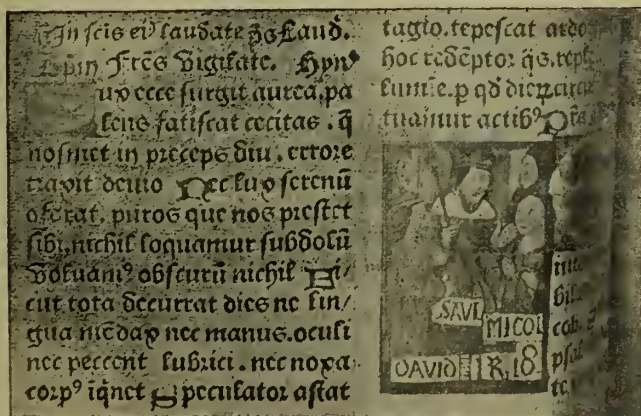 In scis ei⁹ laudate ... Laud.
Epin Fr̄es Vigilate. Hyn⁹
ux ecce surgit aurea. pa
lens fatiscat cecitas. q̄
nosmet in preceps diu. errore
traxit deuio Nec lux serenū
oferat. puros que nos prestet
sibi. nichil loquamur subdolū
Voluam⁹ obscurū nichil Si
cut tota decurrat dies ne lin/
gua mēdax nec manus. oculi
nec peccent lubrici. nec noxa
corp⁹ iq̄net Speculator astat
tagio. tepescat
hoc redēptor q̄s.
p qd̄ diez
tuamur actib⁹
SAVL
MICOL
DAVID I R. 18